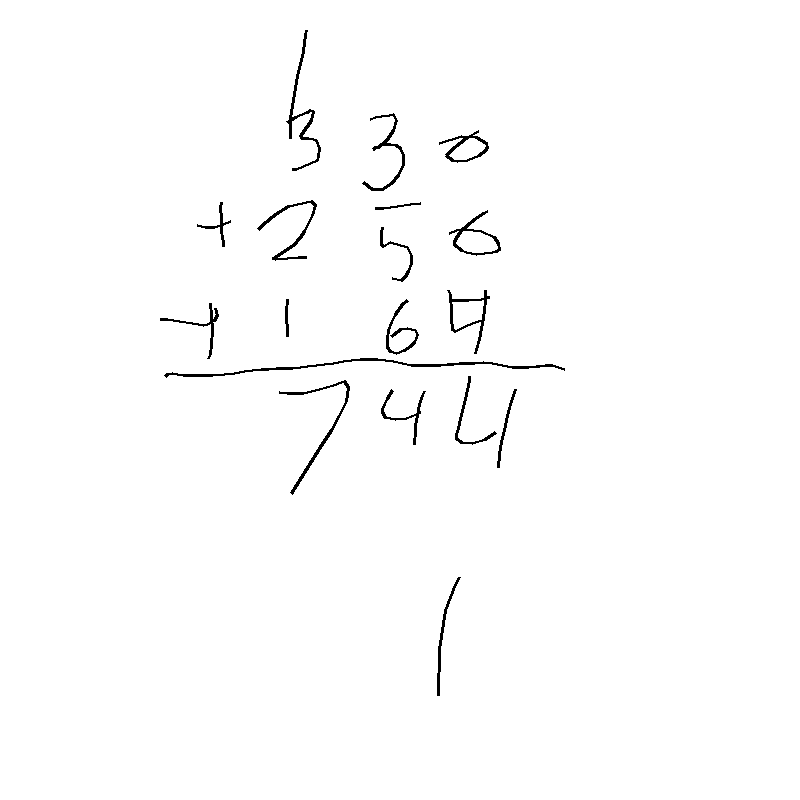 1
330
+ 250
+ 164
744
1